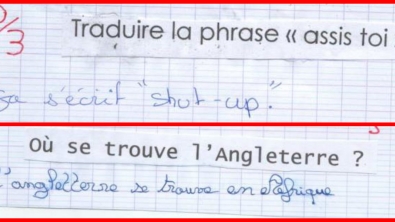 /3
Traduire la phrase « assis toi
ça s'écrit "shut-up."
Où se trouve l'Angleterre ?
l'angleterre se trouve en Afrique